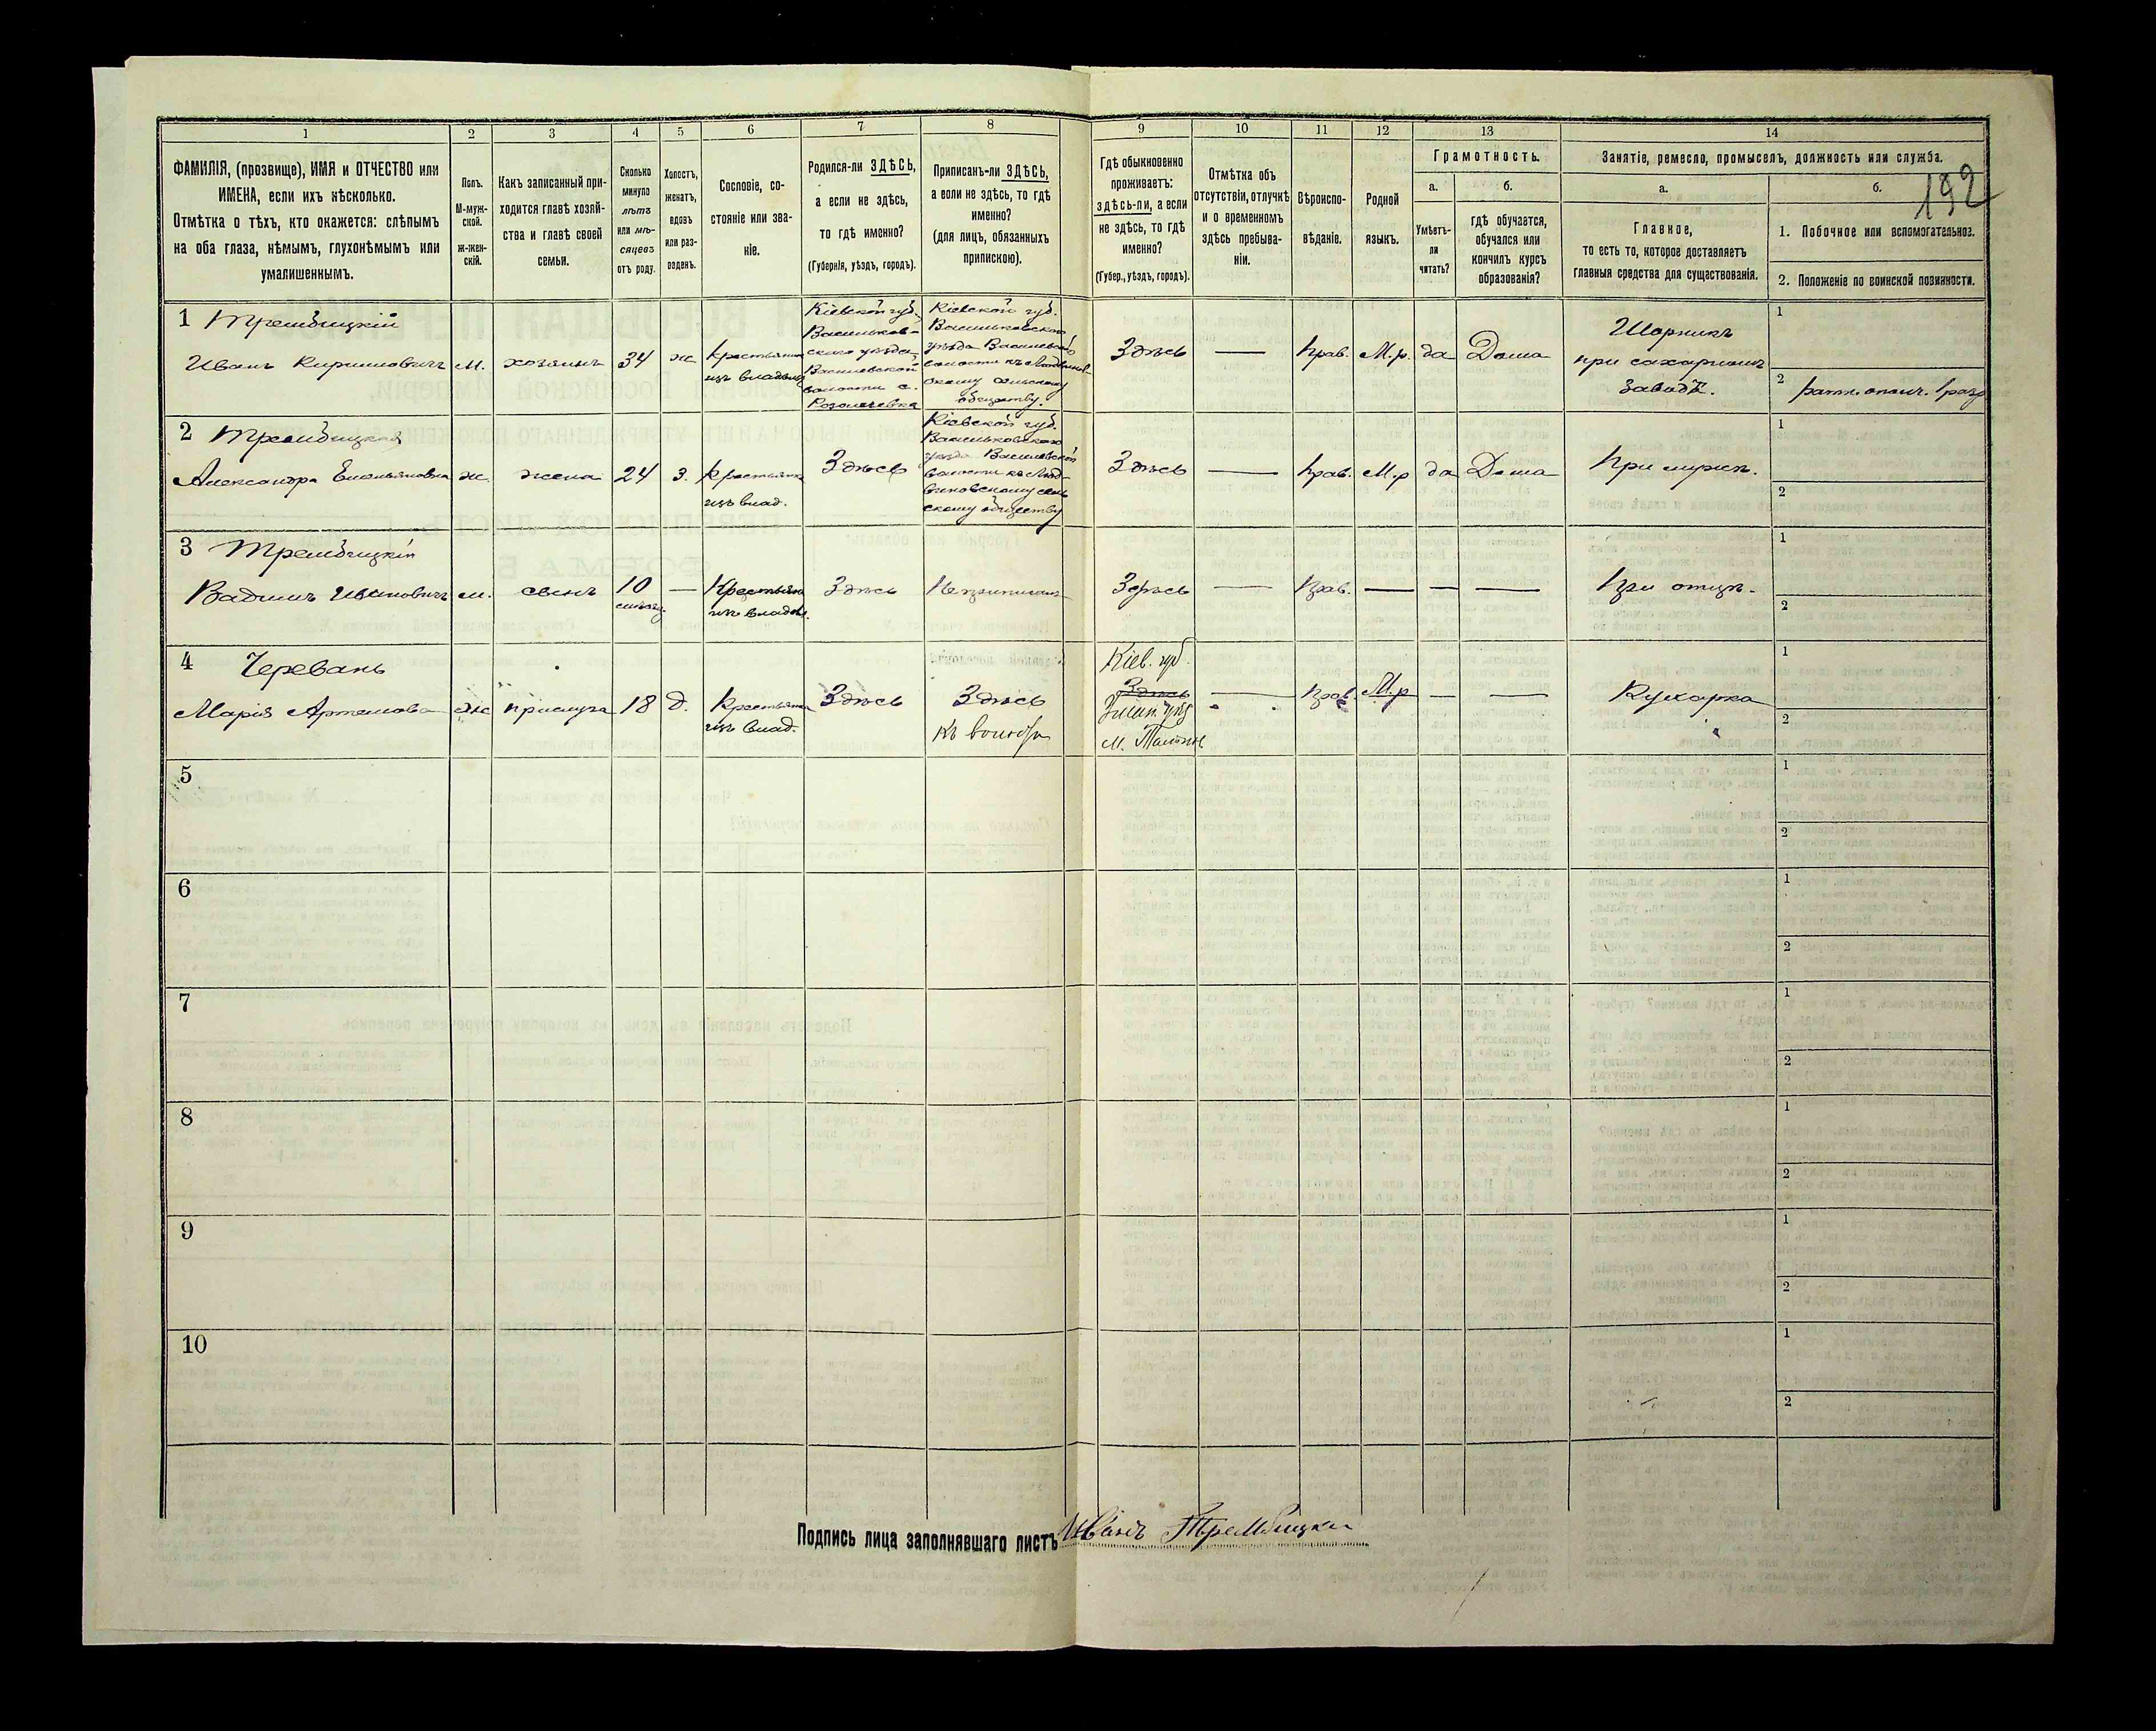 1
2
3
4
5
6
7
8
9
10
11
12
13
14
ФАМИЛІЯ, (прозвище), ИМЯ и ОТЧЕСТВО или
ИМЕНА, если ихъ нѣсколько.
Отмѣтка о тѣхъ, кто окажется: слѣпымъ
на оба глаза, нѣмымъ, глухонѣмымъ или
умалишеннымъ.
Полъ.
М-муж-
ской.
ж-жен-
скій.
Какъ записанный при-
ходится главѣ хозяй-
ства и главѣ своей
семьи.
Сколько
минуло
лѣтъ
или мѣ-
сяцевъ
отъ роду.
Холостъ,
женатъ,
вдовъ
или раз-
веденъ.
Сословіе, со-
стояніе или зва-
ніе.
Родился-ли ЗДѢСЬ,
а если не здѣсь,
то гдѣ именно?
(Губернія, уѣздъ, городъ).
Приписанъ-ли ЗДѢСЬ,
а если не здѣсь, то гдѣ
именно?
(для лицъ, обязанныхъ
припискою).
Гдѣ обыкновенно
проживаетъ:
здѣсь-ли, а если
не здѣсь, то гдѣ
именно?
(Губер., уѣздъ, городъ).
Отмѣтка объ
отсутствіи, отлучкѣ
и о временномъ
здѣсь пребыва-
ніи.
Вѣроиспо-
вѣданіе.
Родной
языкъ.
Грамотность.
а.
Умѣетъ-
ли
читать?
б.
гдѣ обучается,
обучался или
кончилъ курсъ
образованія?
Занятіе, ремесло, промыселъ, должность или служба.
а.
Главное,
то есть то, которое доставляетъ
главныя средства для существованія.
б.
192
1. Побочное или вспомогательное.
2. Положеніе по воинской повинности.
1 Трембицкій
Иванъ Кириловичъ
М.
хозяинъ
34
ж
Крестьянинъ
изъ владѣльч
Кіевской губ.
Васильков-
скаго уѣзда
Васильевской
волости с.
Кіевской губ.
Васильковскаго
уѣзда Васильевской
волости къ
скому сельскому
обществу.
Здѣсь
—
Прав.
М.р.
да
Дома
Шорникъ
при сахарномъ
заводѣ.
1
2
ратн. опол. 1 разр
2 Трембицкая
Александра Емельяновна
ж.
жена
24
з.
Крестьянка
изъ влад.
Здѣсь
Кіевской губ.
Васильковскаго
уѣзда Васильевской
волости къ
скому обществу
Здѣсь
—
Прав.
М.р
да
Дома
При мужѣ.
1
2
3 Трембицкій
Вадимъ Ивановичъ
м.
сынъ
10
мѣсяц.
—
Крестьян
изъ владѣл.
Здѣсь
Не приписанъ
Здѣсь
—
Прав.
—
—
—
При отцѣ.
1
2
4 Черевань
Марія Артемова
ж
прислуга
18
д.
Крестьянка
изъ влад.
Здѣсь
Здѣсь
къ волости
Кіев. губ.
Здѣсь
м.
—
Прав.
М.р
—
—
Кухарка
1
2
5
1
2
6
1
2
7
1
2
8
1
2
9
1
2
10
1
2
Подпись лица заполнявшаго листъ Иванъ Трембицкій